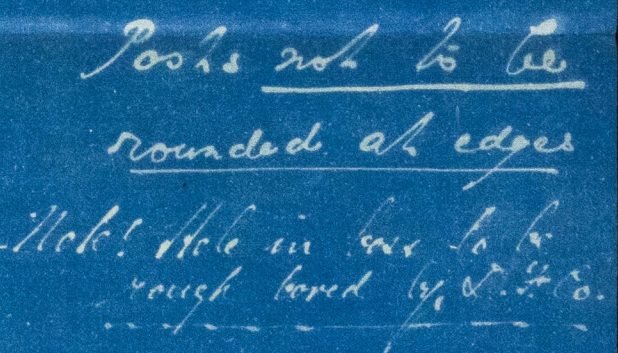 Posts not to be
rounded at edges
Note! Hole in boss to be
rough bored by, L. & Co.